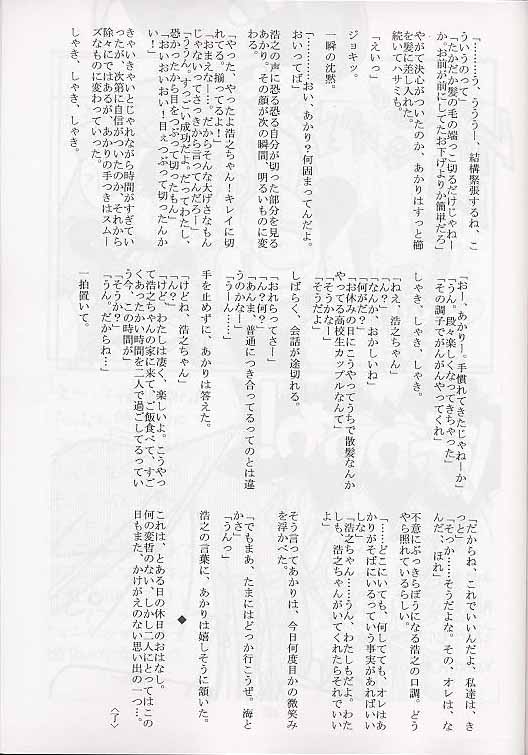 「………う、うううー、結構緊張するね、こ
ういうのって」
「たかだか髪の毛の端っこ切るだけじゃねー
か。お前が前にしてたお下げよりか簡単だろ」
やがて決心がついたのか、あかりはすっと櫛
を髪に差し入れた。
続いてハサミも。
「えいっ」
ジョキッ。
一瞬の沈黙。
「………おい、あかり？何固まってんだよ。
おいってば」
浩之の声に恐る恐る自分が切った部分を見る
あかり。その顔が次の瞬間、明るいものに変
わる。
「やった、やったよ浩之ちゃん！キレイに切
れてる。揃ってるよ！」
「おまえなー…。だからそんな大げさなもん
じゃないってさっきから言ってんだろー」
「ううん。すっごい成功だよ。だってわたし、
恐かったから目をつぶって切ったもん」
「おいおいおい！目ぇつぶって切ったんか
い！」
きゃいきゃいとじゃれながら時間がすぎてい
ったが、次第に自信がついたのか、それから
徐々にではあるが、あかりの手つきはスムー
ズなものに変わっていった。
しゃき、しゃき、しゃき。
「おー、あかりー。手慣れてきたじゃねーか」
「うん。段々楽しくなってきちゃった」
「その調子でがんがんやってくれ」
しゃき、しゃき、しゃき。
「ねえ、浩之ちゃん」
「ん？」
「なんか、おかしいね」
「何がだ？」
「お休みの日にこうやってうちで散髪なんか
やってる高校生カップルなんて」
「そうかなー」
「そうだよ」
しばらく、会話が途切れる。
「おれらってさー」
「ん？何？」
「あんま、普通につき合ってるってのとは違
うのかなー」
「うーん…」
手を止めずに、あかりは答えた。
「けどね、浩之ちゃん」
「ん？」
「けど、わたしは凄く、楽しいよ。こうやっ
て浩之ちゃんの家に来て、ご飯食べて、すご
くあったかい時間を二人で過ごしてるってい
う今、この時間が」
「そうか？」
「うん。だからね…」
一拍置いて。
「だからね、これでいいんだよ、私達は、き
っと」
「そっか……そうだよな。その、オレは、な
んだ、ほれ」
不意にぶっきらぼうになる浩之の口調。どう
やら照れているらしい。
「……どこにいても、何してても、オレはあ
かりがそばにいるっていう事実があればいい
しな」
「浩之ちゃん……うん、わたしもだよ。わた
しも、浩之ちゃんがいてくれたらそれでいい
よ」
そう言ってあかりは、今日何度目かの微笑み
を浮かべた。
「でもまあ、たまにはどっか行こうぜ。海と
かさ」
「うんっ」
浩之の言葉に、あかりは嬉しそうに頷いた。
◆
これは、とある日の休日のおはなし。
何の変哲のない、しかし二人にとってはこの
日もまた、かけがえのない思い出の一つ…。
〈了〉